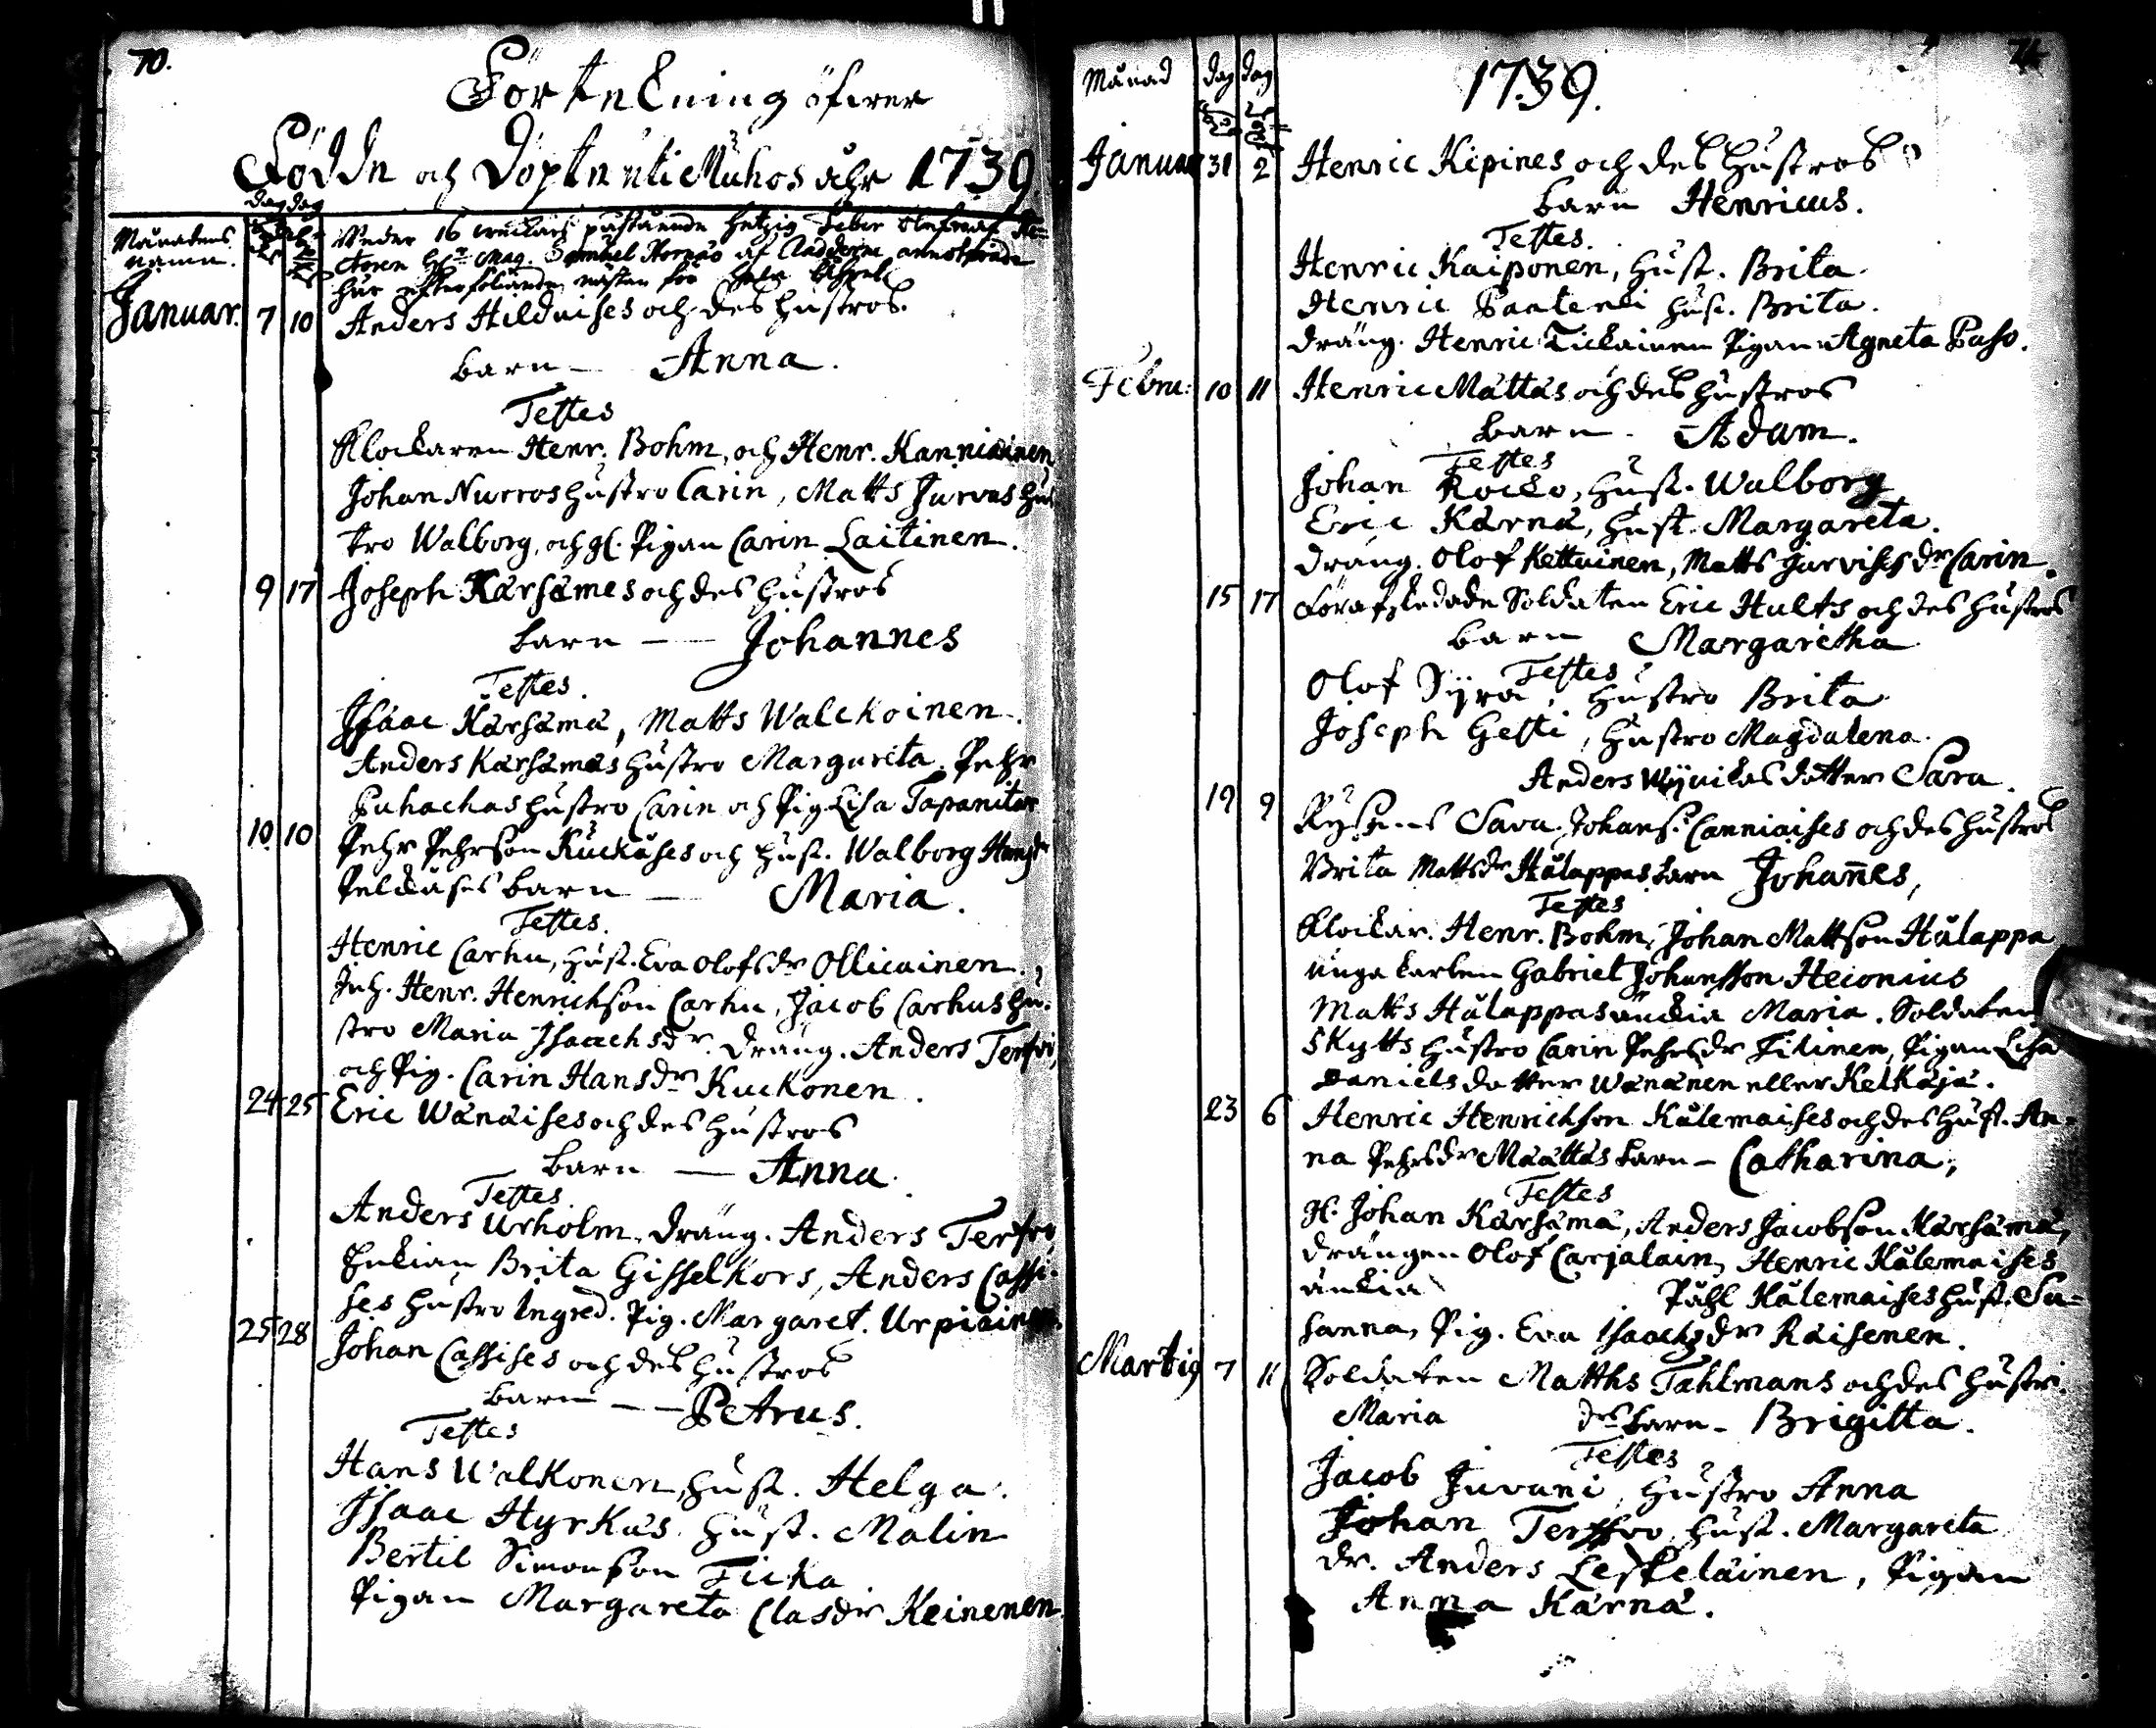 70.
Förtekning öfwer
Födde och Döpte uti Muhos åhr 1739.
dag dag
Månadens
namn.
Under 16 weckors påstående hetzig Feber
Mag. Samuel
här efterföliande nästan för
Januar. 7 10 Anders Hilduises och des hustros
barn — Anna.
Testes
Klockaren Henr. Bohm, och Henr. Kanniainen
Johan Nurros hustro Carin, Matts Jurvas hus
tro Walborg, och gl. Pigan Carin Laitinen.
9 17 Joseph Kärsämes och des hustros
barn — Johannes
Testes.
Isaac Kärsämä, Matts Walckoinen.
Anders Kärsämäs hustro Margareta. Pehr
Puhackas hustro Carin och Pig. Lisa Tapanitar
10 10 Pehr Pehrson Kuckåses och hust. Walborg Hansdr
Pelckåses barn — Maria.
Testes.
Henric Carhu, hust. Eva Olofsdr Ollicainen.,
Inh. Henr. Henrichson Carhu, Jacob Carhus hu-
stro Maria Isaachsdr. dräng. Anders Terfvo,
och Pig. Carin Hansdr Kuckonen.
24 25 Eric Wänäises och des hustros
barn — Anna.
Testes
Anders Urholm, dräng. Anders Terfvo,
Enkian Brita Gisselkors, Anders Cassi-
ses hustro Ingred. Pig. Margaret. Urpiainen.
25 28 Johan Cassises och des hustros
barn — Petrus.
Testes
Hans Walkonen, hust. Helga.
Isaac Hyrkäs hust. Malin
Bertil Simonson Ticka
Pigan Margareta Clasdr Keinenen
71
Månad dag dag
1739.
Januar 31 2 Henric Kipines och des hustros
barn Henricus.
Testes.
Henric Kaiponen, hust. Brita.
Henric Panteli hust. Brita.
dräng. Henric Tickainen Pigan Agneta Paso.
Febru: 10 11 Henric Mättäs och des hustros
barn. Adam.
Testes
Johan Rocko, hust. Walborg
Eric Kärnä, hust. Margareta.
dräng. Olof Kettuinen, Matts Jarvises dr Carin.
15 17 Förafskedade Soldaten Eric Hults och des hustros
barn Margaretha
Testes
Olof Syrä, hustro Brita
Joseph Gesti, hustro Magdalena.
Anders Wynikas dotter Sara.
19 9 Rysens Sava. Johans. Canniaises och des hustros
Brita Mattsdr Hålappas barn Johan̄es,
Testes
Klockar. Henr. Bohm, Johan Mattson Hålappa
unga karlen Gabriel Johansson Heionius
Matts Hålappas änckia Maria. Soldaten
Skytts hustro Carin Pehrsdr Tikinen, Pigan Lisa
Daniels dotter Wänänen eller Kelkäjä.
23 6 Henric Henrichson Kålemaises och des hust. An-
na Pehrsdr Määttäs barn — Catharina,
Testes
Gl. Johan Kärsämä, Anders Jacobson Kärsämä,
drängen Olof Carjalain, Henric Kålemaises
änckia Påhl Kålemaises hust. Su-
sanna, Pig. Eva Isaachsdr Räisenen.
Martig 7 11 Soldaten Matths Tahlmans och des hustr.
Maria dr barn — Brigitta.
Testes
Jacob Juvani, hustro Anna
Johan Terffvo hust. Margareta
dr. Anders Leskeläinen, Pigan
Anna Kärnä.